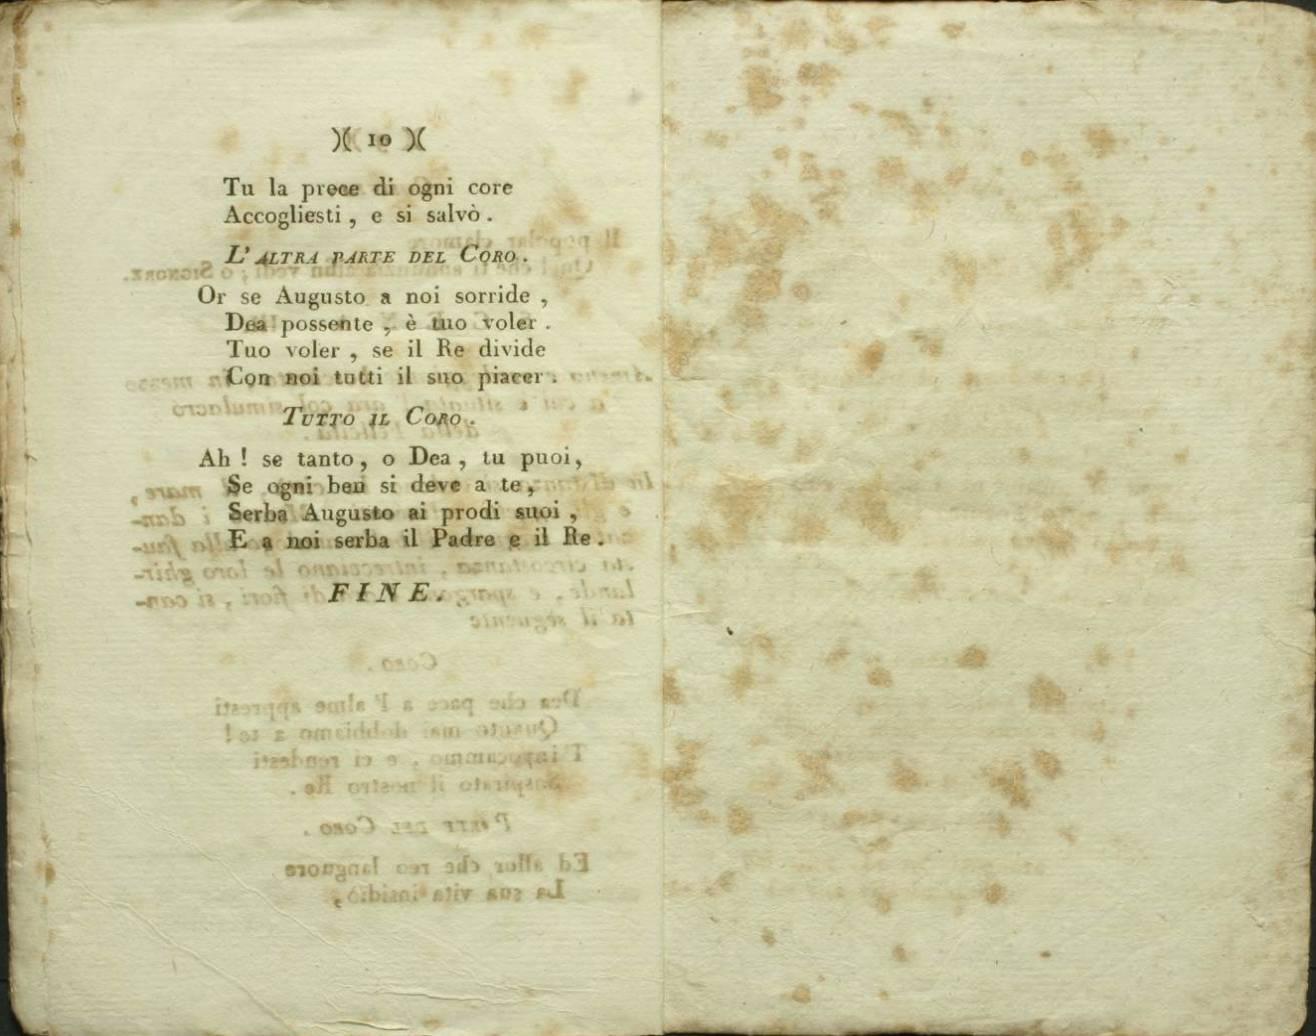 )( 10 )(
Tu la prece di ogni core
Accogliesti, e si salvò.
L'ALTRA PARTE DEL CORO.
Or se Augusto a noi sorride,
Dea possente, è tuo voler.
Tuo voler, se il Re divide
Con noi tutti il suo piacer.
TUTTO IL CORO.
Ah! se tanto, o Dea, tu puoi,
Se ogni ben si deve a te,
Serba Augusto ai prodi suoi,
E a noi serba il Padre e il Re.
FINE.